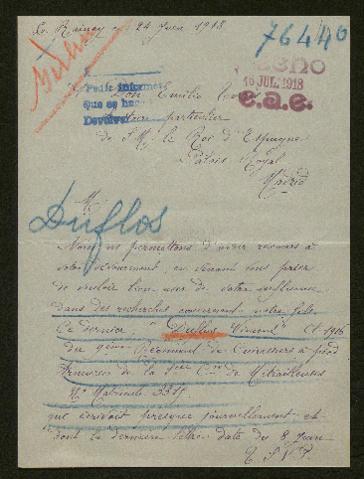 Le Raincy le 24 Juin 1918
76440
16 JUL. 1918
e.a.e.
Pedir informes
que se haga
Devolver
Don Emilio
particulier
de S.M. le Roi d'Espagne
Palais Royal
Madrid
M.
Duflos
Nous nous permettons d'avoir recours à
votre dévouement, en venant vous prier
de vouloir bien user de votre influence
dans des recherches concernant notre fils
Ce dernier "Duflos Cl 1916
du 9ème Régiment de Cuirassiers à pied
de la 1ère Cie de Mitrailleuses
No Matricule 3311
qui écrivait presque journellement et
dont la dernière lettre date du 8 Juin
T.S.V.P.